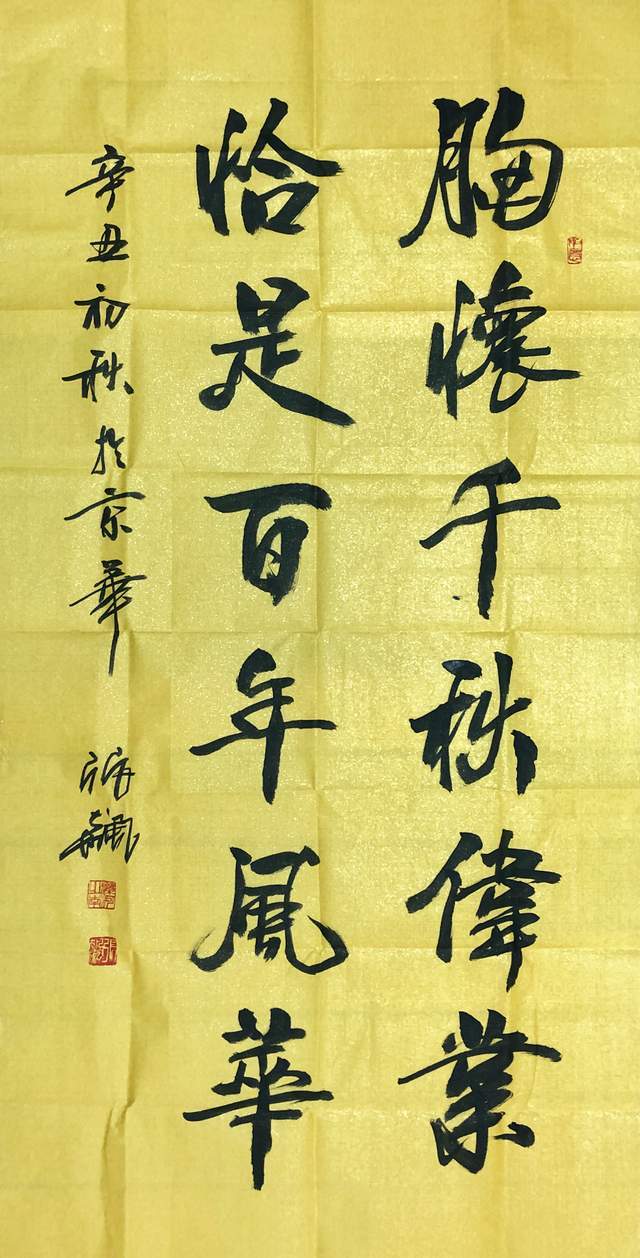 胸懷千秋偉業
恰是百年風華
辛丑初秋於京華